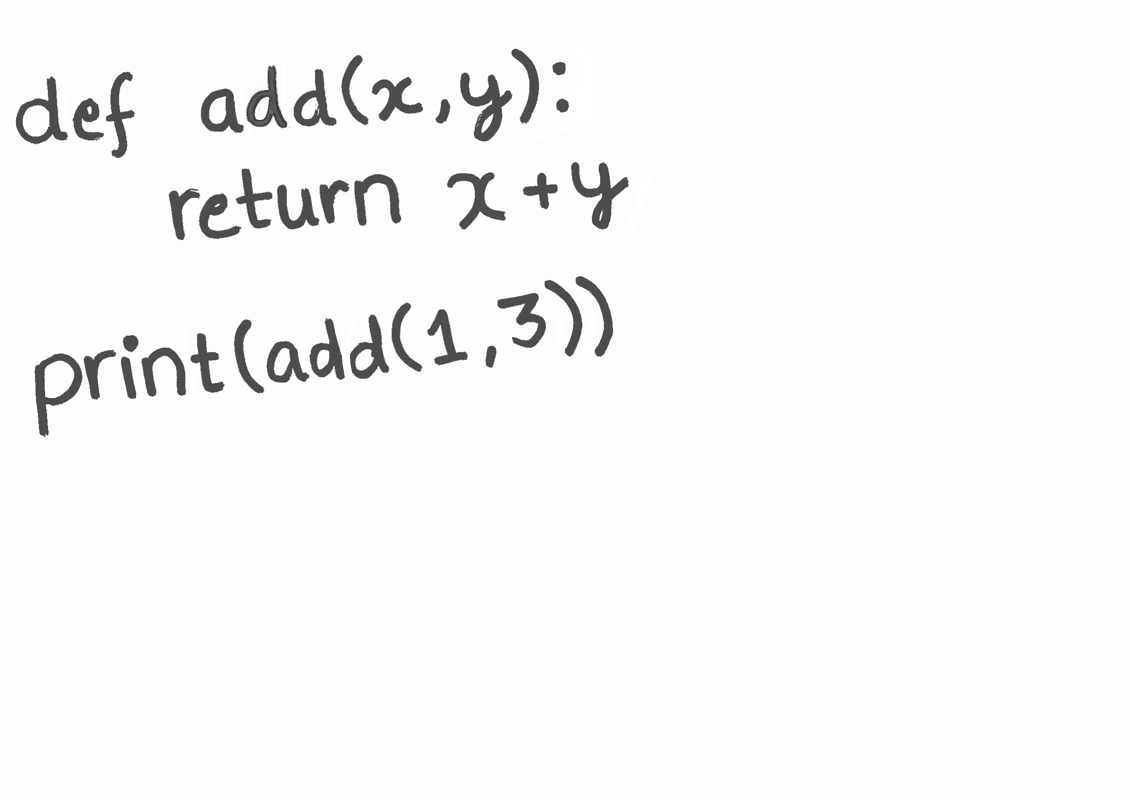 def add(x,y):
    return x+y
print(add(1,3))